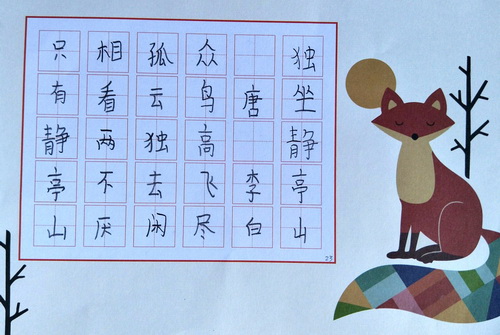 独坐静亭山
唐 李白
众鸟高飞尽
孤云独去闲
相看两不厌
只有静亭山